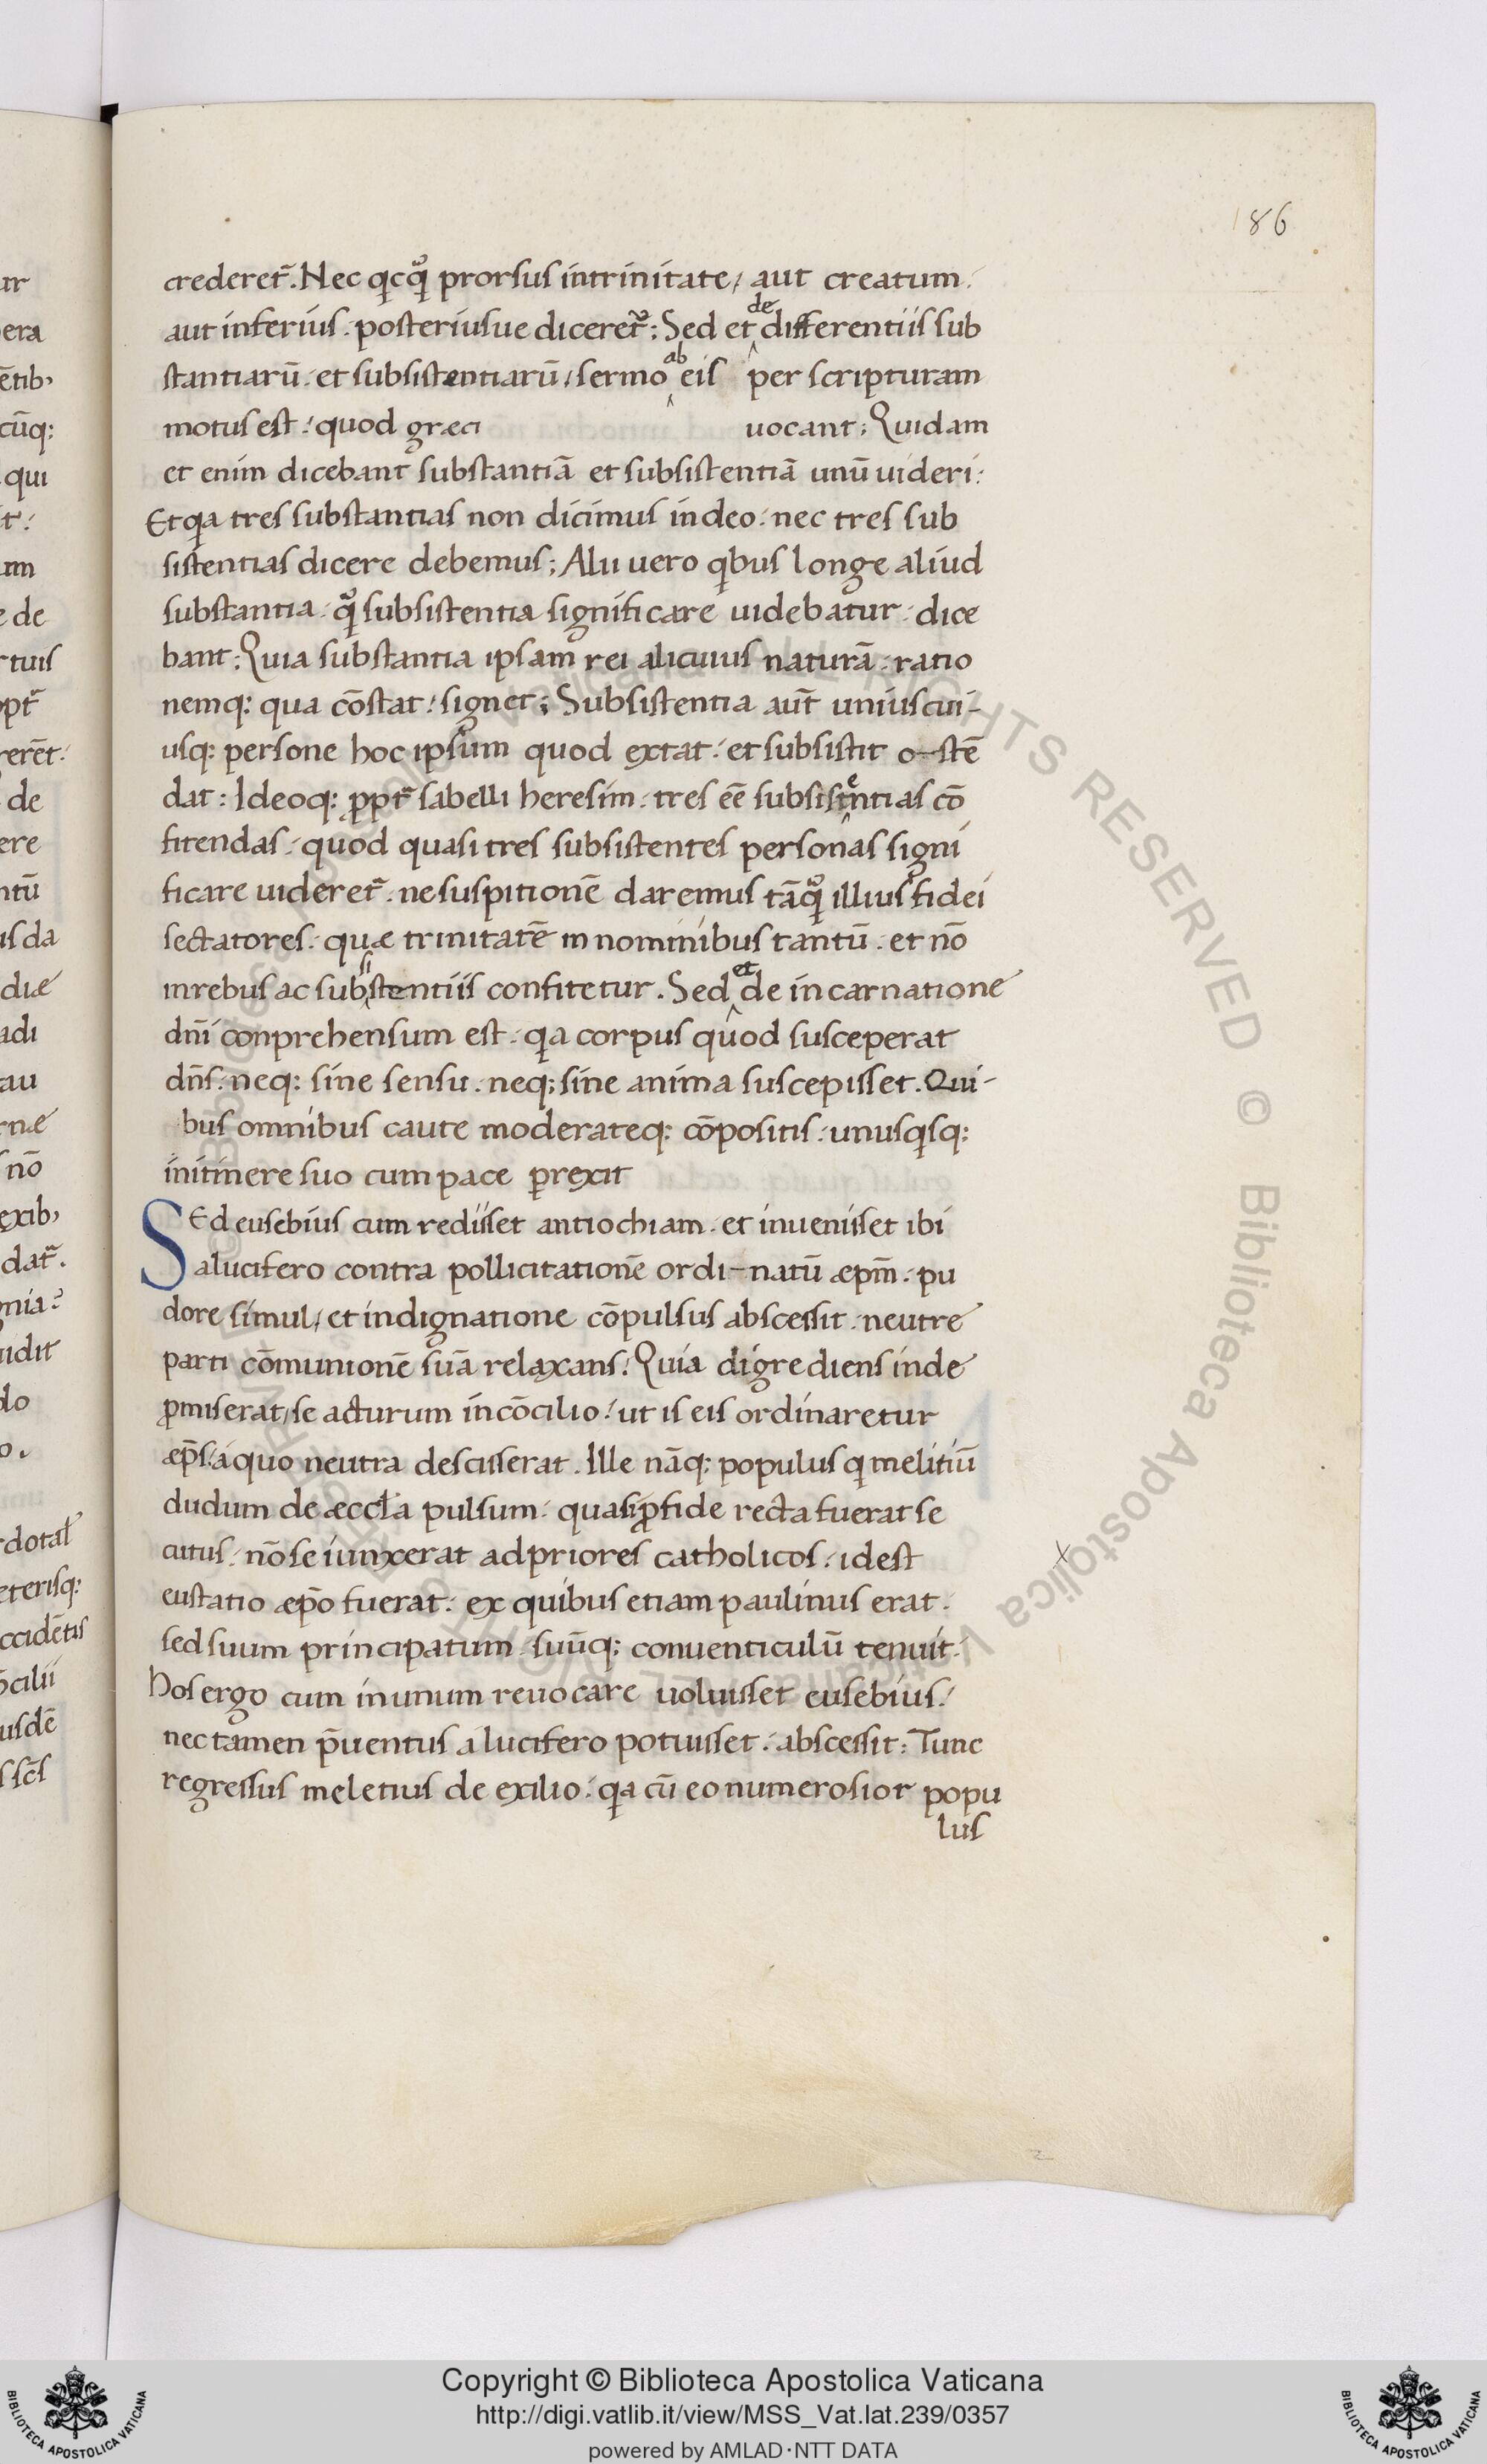 186
crederet᷒. Nec qicqͦ prorsus intrinitate, aut creatum.
aut inferius. posteriusue diceret᷒; Sed et de differentiis sub
stantiarū. et subsistentiarū, sermo ab eis per scripturam
motus est. quod græci uocant; Quidam
et enim dicebant substantiā et subsistentiā unū uideri.
Et qa tres substantias non dicimus indeo. nec tres sub
sistentias dicere debemus; Alii uero qbus longe aliud
substantia. qͦ subsistentia significare uidebatur. dice
bant; Quia substantia ipsam rei alicuius naturā. ratio
nemq: qua cōstat. signet; Subsistentia aut̄ uniuscui-
usq: persone hoc ipsum quod extat. et subsistit o-stē
dat: Ideoq: ꝓpt᷒ sabelli heresim. tres eē subsistentias cō
fitendas. quod quasi tres subsistentes personas signi
ficare uideret᷒. ne suspitionē daremus tāqͦ illius fidei
sectatores. quæ trinitatē in nominibus tantū. et nō
inrebus ac subsistentiis confitetur. Sed et de incarnatione
dn̄i conprehensum est. qa corpus quod susceperat
dn̄s. neq: sine sensu. neq; sine anima suscepisset. Qui-
bus omnibus caute moderateq: cōpositis. unusqsq:
initinere suo cum pace ꝑrexit
SEd eusebius cum redisset antiochiam. et inuenisset ibi
alucifero contra pollicitationē ordi-natū æpm̄. pu
dore simul, et indignatione cōpulsus abscessit. neutre
parti cōmunionē suā relaxans. Quia digrediens inde
ꝓmiserat, se acturum in cōcilio. ut is eis ordinaretur
æp̄s. aquo neutra desciisserat. Ille nāq: populus q melitiū
dudum de æccł̄a pulsum. quasi ꝓ fide recta fuerat se
cutus. nō se iunxerat adpriores catholicos. idest
eustatio æpō fuerat. ex quibus etiam paulinus erat.
sed suum principatum. suūq: conuenticulū tenuit.
Hos ergo cum inunum reuocare uoluisset eusebius.
nec tamen p̄uentus alucifero potuisset. abscessit: Tunc
regressus meletius de exilio. qa cū eo numerosior popu
lus
Copyright © Biblioteca Apostolica Vaticana
http://digi.vatlib.it/view/MSS_Vat.lat.239/0357
powered by AMLAD·NTT DATA